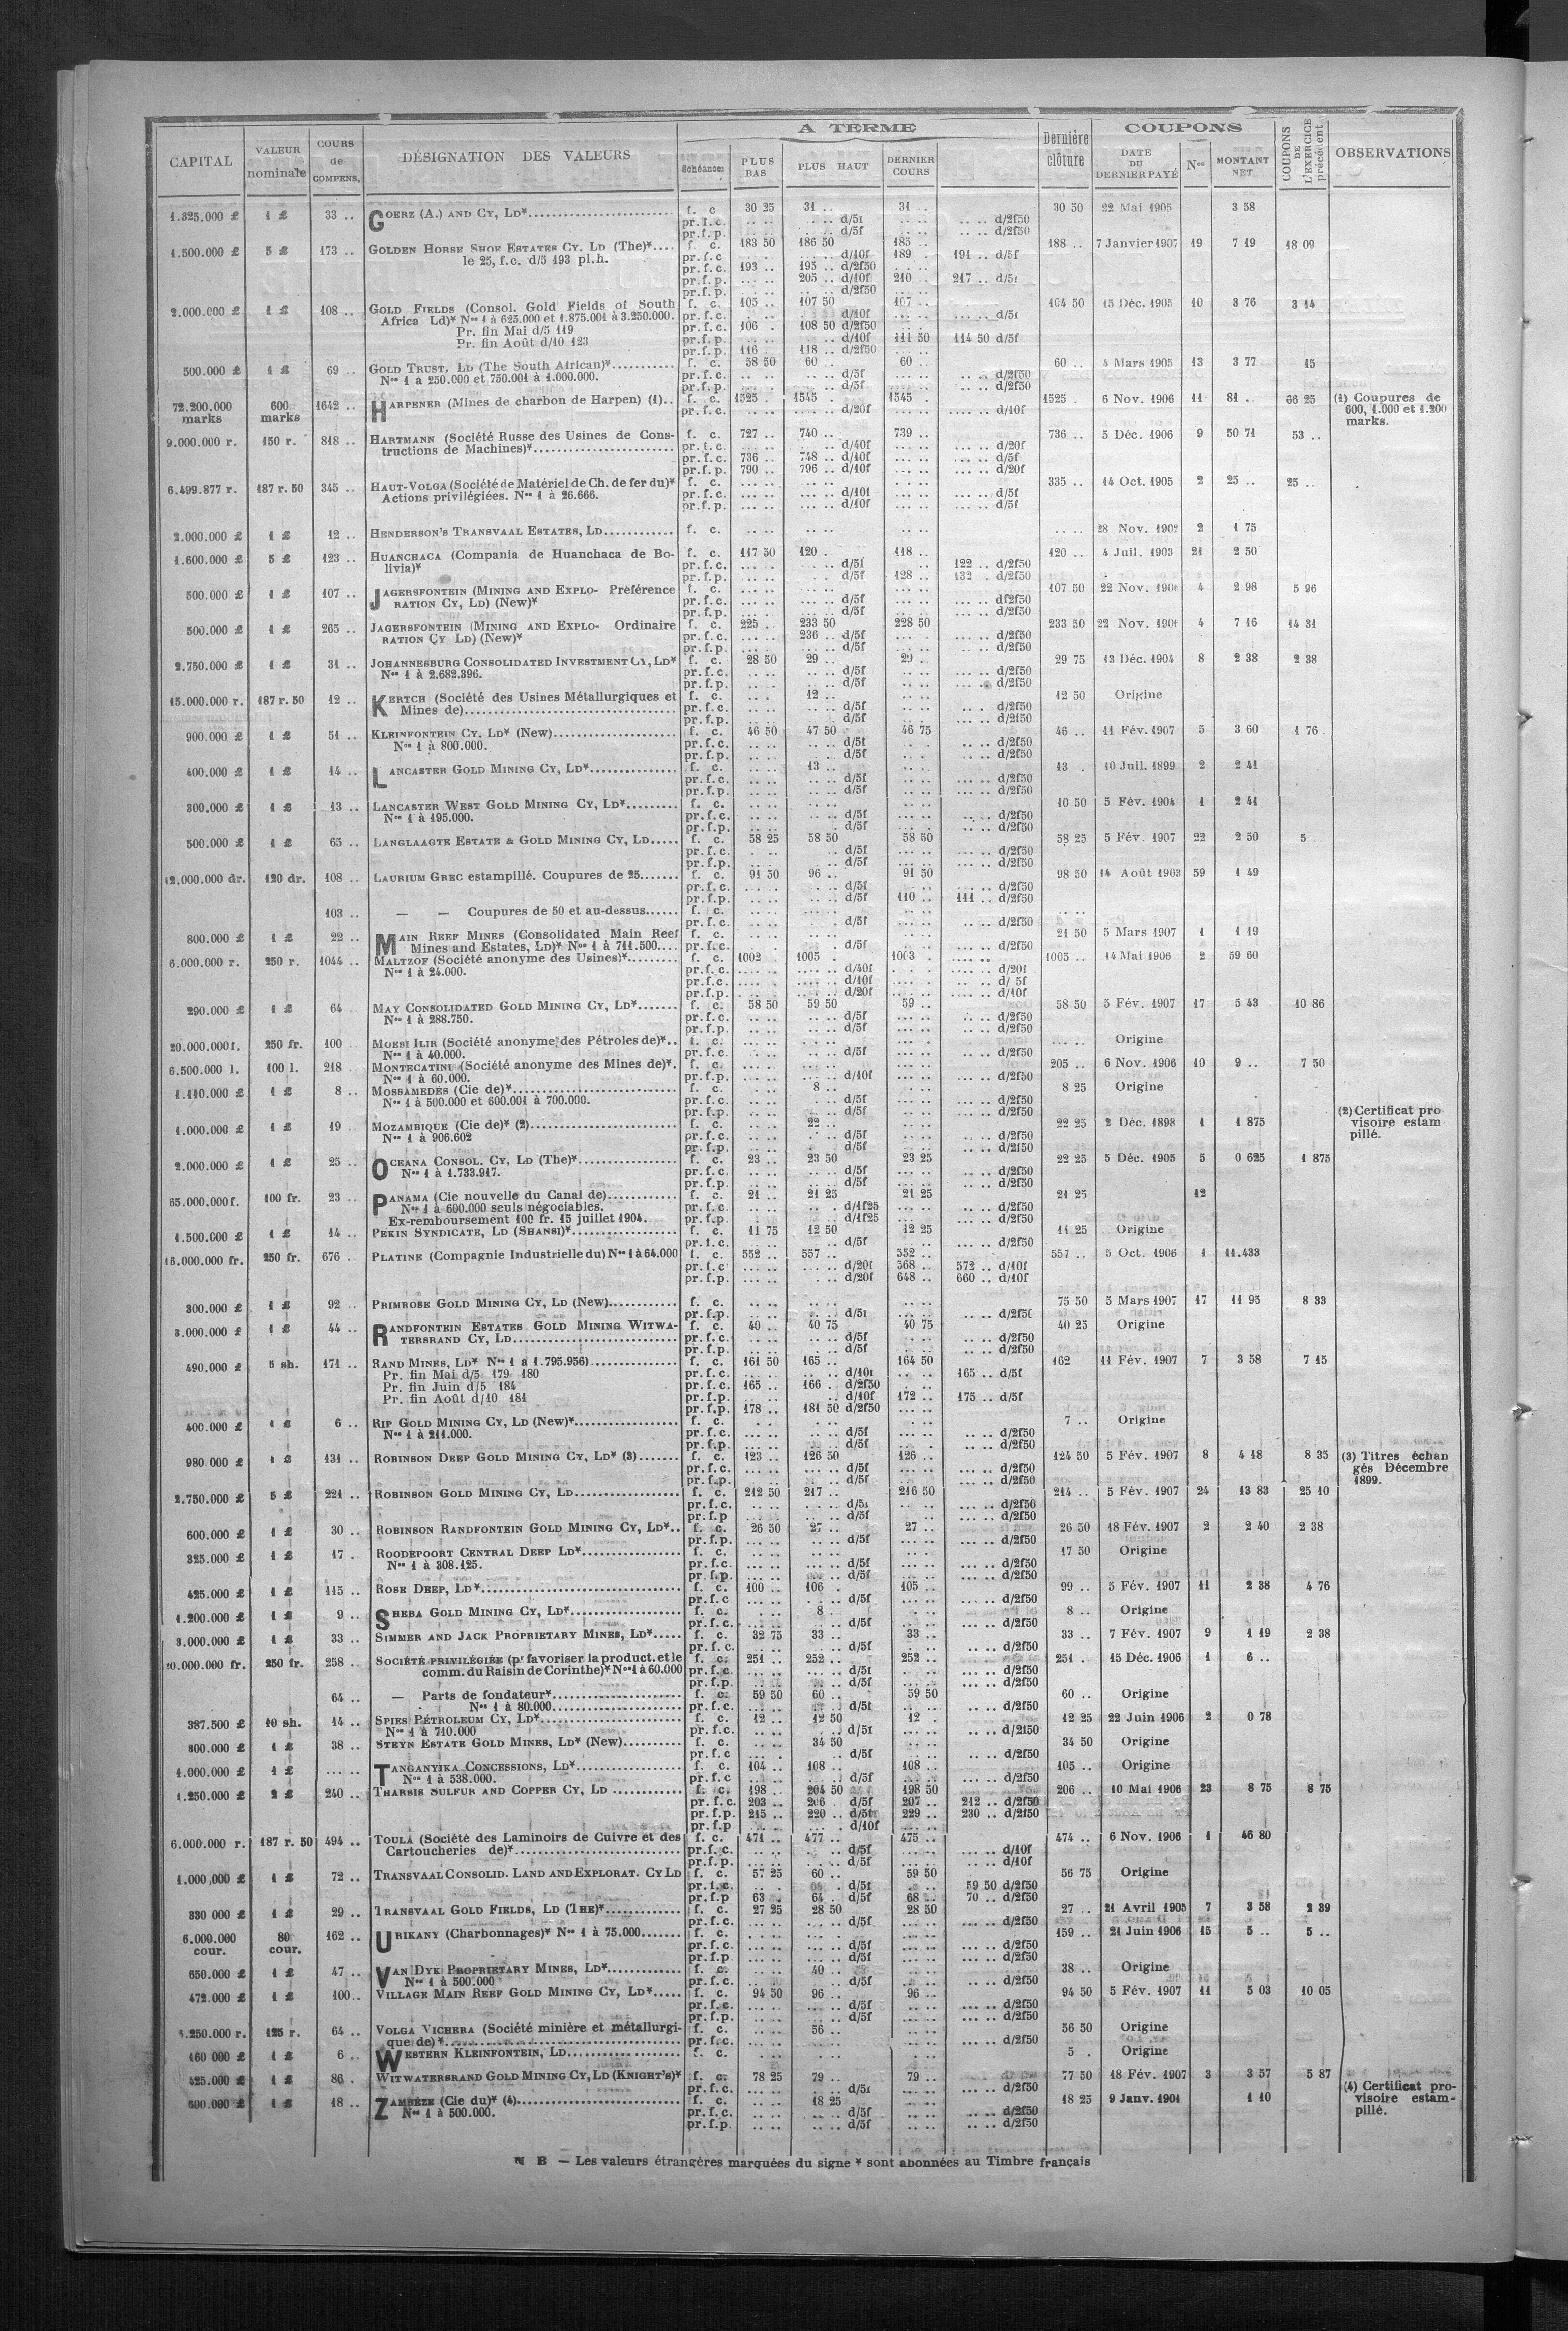 CAPITAL VALEUR nominale COURS de COMPENS. DÉSIGNATION DES VALEURS A TERME Echéances PLUS BAS PLUS HAUT DERNIER COURS Dernière clôture COUPONS DATE DU DERNIER PAYÉ Nos MONTANT NET COUPONS DE L'EXERCICE précédent OBSERVATIONS
1.325.000 £ 1 £ 33 .. GOERZ (A.) AND CY, LD* f. c 30 25 31 .. 31 .. 30 50 22 Mai 1905 3 58
pr. f. c. d/5f d/2f50
pr.f.p. d/5f d/2f50
1.500.000 £ 5 £ 173 .. GOLDEN HORSE SHOE ESTATES CY, LD (The)* f. c. 183 50 186 50 185 .. 188 .. 7 Janvier 1907 19 7 19 18 09
le 25, f.c. d/5 193 pl.h. pr. f. c d/10f 189 . 191 .. d/5f
pr. f. c. 193 .. 195 .. d/2f50
pr.f.p. 205 .. d/10f 210 .. 217 .. d/5f
pr.f.p. d/2f50
2.000.000 £ 1 £ 108 .. GOLD FIELDS (Consol. Gold Fields of South f. c. 105 .. 107 50 107 .. 104 50 15 Déc. 1905 10 3 76 3 14
Africa Ld)* Nos 1 à 625.000 et 1.875.001 à 3.250.000. pr.f.c. d/10f d/5f
Pr. fin Mai d/5 119 pr.f.c. 106 . 108 50 d/2f50
Pr. fin Août d/10 123 pr.f.p. d/10f 111 50 114 50 d/5f
pr.f.p. 116 . 118 .. d/2f50
500.000 £ 1 £ 69 .. GOLD TRUST, LD (The South African)* f. c. 58 50 60 .. 60 .. 60 .. 4 Mars 1905 13 3 77 15
Nos 1 à 250.000 et 750.001 à 1.000.000. pr.f.c. d/5f d/2f50
pr.f.p. d/5f d/2f50
72.200.000 marks 600 marks 1642 .. HARPENER (Mines de charbon de Harpen) (1).. f. c. 1525 . 1545 . 1545 . 1525 . 6 Nov. 1906 11 81 .. 66 25 (1) Coupures de
pr. f. c. d/20f d/10f 600, 1.000 et 1.200
marks.
9.000.000 r. 150 r. 818 .. HARTMANN (Société Russe des Usines de Cons- f. c. 727 .. 740 .. 739 .. 736 .. 5 Déc. 1906 9 50 71 53 ..
tructions de Machines)* pr. f. c. d/40f d/20f
pr.f.c. 736 .. 748 .. d/10f d/5f
pr.f.p. 790 .. 796 .. d/10f d/20f
6.499.877 r. 187 r. 50 345 .. HAUT-VOLGA (Société de Matériel de Ch. de fer du)* f. c. 335 .. 14 Oct. 1905 2 25 .. 25 ..
Actions privilégiées. Nos 1 à 26.666. pr.f.c. d/10f d/5f
pr.f.p. d/10f d/5f
2.000.000 £ 1 £ 12 .. HENDERSON'S TRANSVAAL ESTATES, LD f. c. 28 Nov. 1902 2 1 75
1.600.000 £ 5 £ 123 .. HUANCHACA (Compania de Huanchaca de Bo- f. c. 117 50 120 .. 118 .. 120 .. 4 Juil. 1903 21 2 50
livia)* pr.f.c. d/5f 122 .. d/2f50
pr.f.p. d/5f 128 .. 132 . d/2f50
500.000 £ 1 £ 107 .. JAGERSFONTEIN (MINING AND EXPLO- Préférence f. c. 107 50 22 Nov. 1906 4 2 98 5 96
RATION CY, LD) (New)* pr.f.c. d/5f d/2f50
pr.f.p. d/5f d/2f50
500.000 £ 1 £ 265 .. JAGERSFONTEIN (MINING AND EXPLO- Ordinaire f. c. 225 .. 233 50 228 50 233 50 22 Nov. 1906 4 7 16 14 31
RATION CY LD) (New)* pr.f.c. 236 .. d/5f d/2f50
pr.f.p. d/5f d/2f50
2.750.000 £ 1 £ 31 .. JOHANNESBURG CONSOLIDATED INVESTMENT CY, LD* f. c. 28 50 29 .. 29 . 29 75 13 Déc. 1904 8 2 38 2 38
Nos 1 à 2.682.396. pr.f.c. d/5f d/2f50
pr.f.p. d/5f d/2f50
15.000.000 r. 187 r. 50 12 .. KERTCH (Société des Usines Métallurgiques et f. c. 12 .. 12 50 Origine
Mines de) pr.f.c. d/5f d/2f50
pr.f.p. d/5f d/2f50
900.000 £ 1 £ 51 .. KLEINFONTEIN CY. LD* (New) f. c. 46 50 47 50 46 75 46 .. 11 Fév. 1907 5 3 60 1 76
Nos 1 à 800.000. pr.f.c. d/5f d/2f50
pr.f.p. d/5f d/2f50
400.000 £ 1 £ 14 .. LANCASTER GOLD MINING CY, LD* f. c. 13 .. 13 . 10 Juil. 1899 2 2 41
pr.f.c. d/5f d/2f50
pr.f.p. d/5f d/2f50
300.000 £ 1 £ 13 .. LANCASTER WEST GOLD MINING CY, LD* f. c. 10 50 5 Fév. 1904 1 2 41
Nos 1 à 195.000. pr.f.c. d/5f d/2f50
pr.f.p. d/5f d/2f50
500.000 £ 1 £ 65 .. LANGLAAGTE ESTATE & GOLD MINING CY, LD f. c. 58 25 58 50 58 50 58 25 5 Fév. 1907 22 2 50 5
pr.f.c. d/5f d/2f50
pr.f.p. d/5f d/2f50
12.000.000 dr. 120 dr. 108 .. LAURIUM GREC estampillé. Coupures de 25 f. c. 91 50 96 .. 91 50 98 50 14 Août 1903 59 1 49
pr.f.c. d/5f d/2f50
pr.f.p. d/5f 110 .. 111 .. d/2f50
103 .. — — Coupures de 50 et au-dessus f. c.
pr.f.c. d/5f d/2f50
800.000 £ 1 £ 22 .. MAIN REEF MINES (Consolidated Main Reef f. c. 21 50 5 Mars 1907 1 1 19
Mines and Estates, LD)* Nos 1 à 711.500 pr.f.c. d/5f d/2f50
6.000.000 r. 250 r. 1044 .. MALTZOF (Société anonyme des Usines)* f. c. 1002 . 1005 . 1003 . 1005 .. 14 Mai 1906 2 59 60
Nos 1 à 24.000. pr.f.c. d/40f d/20f
pr.f.c. d/10f d/ 5f
pr.f.p. d/20f d/10f
290.000 £ 1 £ 64 MAY CONSOLIDATED GOLD MINING CY, LD* f. c. 58 50 59 50 59 .. 58 50 5 Fév. 1907 17 5 43 10 86
Nos 1 à 288.750. pr.f.c. d/5f d/2f50
pr.f.p. d/5f d/2f50
20.000.000 f. 250 fr. 100 MOESI ILIR (Société anonyme des Pétroles de)* f. c. Origine
Nos 1 à 40.000. pr.f.c. d/5f d/2f50
6.500.000 l. 100 l. 218 . MONTECATINI (Société anonyme des Mines de)*. f. c. 205 .. 6 Nov. 1906 10 9 .. 7 50
Nos 1 à 60.000. pr.f.p. d/10f d/2f50
1.110.000 £ 1 £ 8 .. MOSSAMEDÈS (Cie de)* f. c. 8 .. 8 25 Origine
Nos 1 à 500.000 et 600.001 à 700.000. pr.f.c. d/5f d/2f50
pr.f.p. d/5f d/2f50 (2) Certificat pro
1.000.000 £ 1 £ 19 . MOZAMBIQUE (Cie de)* (2) f. c. 22 .. 22 25 2 Déc. 1898 1 1 875 visoire estam
Nos 1 à 906.602 pr.f.c. d/5f d/2f50 pillé.
pr.f.p. d/5f d/2f50
2.000.000 £ 1 £ 25 .. OCEANA CONSOL. CY, LD (The)* f. c. 23 .. 23 50 23 25 22 25 5 Déc. 1905 5 0 625 1 875
Nos 1 à 1.733.917. pr.f.c. d/5f d/2f50
pr.f.p. d/5f d/2f50
65.000.000 f. 100 fr. 23 .. PANAMA (Cie nouvelle du Canal de) f. c. 21 .. 21 25 21 25 21 25 12
Nos 1 à 600.000 seuls négociables. pr.f.c. d/1f25 d/2f50
Ex-remboursement 100 fr. 15 juillet 1904. pr.f.p. d/1f25 d/2f50
1.500.000 £ 1 £ 14 .. PEKIN SYNDICATE, LD (SHANSI)* f. c. 11 75 12 50 12 25 11 25 Origine
pr.f.c. d/5f d/2f50
16.000.000 fr. 250 fr. 676 . PLATINE (Compagnie Industrielle du) Nos 1 à 64.000 f. c. 552 .. 557 .. 552 .. 557 .. 5 Oct. 1906 1 11.433
pr.f.c d/20f 568 .. 572 .. d/10f
pr.f.p. d/20f 648 .. 660 .. d/10f
300.000 £ 1 £ 92 .. PRIMROSE GOLD MINING CY, LD (New) f. c. 75 50 5 Mars 1907 17 11 95 8 33
pr.f.p. d/5f d/2f50
3.000.000 £ 1 £ 44 .. RANDFONTEIN ESTATES GOLD MINING WITWA- f. c. 40 .. 40 75 40 75 40 25 Origine
TERSRAND CY, LD pr.f.c. d/5f d/2f50
pr.f.p. d/5f d/2f50
490.000 £ 5 sh. 171 .. RAND MINES, LD* Nos 1 a 1.795.956) f. c. 161 50 165 .. 164 50 162 11 Fév. 1907 7 3 58 7 15
Pr. fin Mai d/5 179 180 pr.f.c. d/10f 165 .. d/5f
Pr. fin Juin d/5 184 pr.f.c. 165 .. 166 . d/2f50
Pr. fin Août d/10 181 pr.f.p. d/10f 172 .. 175 .. d/5f
pr.f.p. 178 .. 181 50 d/2f50
400.000 £ 1 £ 6 .. RIP GOLD MINING CY, LD (New)* f. c. 7 .. Origine
Nos 1 à 211.000. pr.f.c. d/5f d/2f50
pr.f.p. d/5f d/2f50
980.000 £ 1 £ 131 .. ROBINSON DEEP GOLD MINING CY, LD* (3) f. c. 123 .. 126 50 126 .. 124 50 5 Fév. 1907 8 4 18 8 35 (3) Titres échan
pr.f.c. d/5f d/2f50 gés Décembre
pr.f.p. d/5f d/2f50 1899.
2.750.000 £ 5 £ 221 .. ROBINSON GOLD MINING CY, LD f. c. 212 50 217 .. 216 50 214 .. 5 Fév. 1907 24 13 83 25 10
pr.f.c. d/5f d/2f50
pr.f.p d/5f d/2f50
600.000 £ 1 £ 30 .. ROBINSON RANDFONTEIN GOLD MINING CY, LD*.. f. c. 26 50 27 .. 27 .. 26 50 18 Fév. 1907 2 2 40 2 38
pr.f.p. d/5f d/2f50
325.000 £ 1 £ 17 . ROODEPOORT CENTRAL DEEP LD* f. c. 17 50 Origine
Nos 1 à 308.125. pr.f.c. d/5f d/2f50
pr.f.p. d/5f d/2f50
425.000 £ 1 £ 115 .. ROSE DEEP, LD* f. c. 100 .. 106 . 105 .. 99 .. 5 Fév. 1907 11 2 38 4 76
pr.f.c d/5f d/2f50
1.200.000 £ 1 £ 9 .. SHEBA GOLD MINING CY, LD* f. c. 8 . 8 .. Origine
pr.f.c. d/5f d/2f50
3.000.000 £ 1 £ 33 .. SIMMER AND JACK PROPRIETARY MINES, LD* f. c. 32 75 33 .. 33 .. 33 .. 7 Fév. 1907 9 1 19 2 38
pr.f.c. d/5f d/2f50
10.000.000 fr. 250 fr. 258 .. SOCIÉTÉ PRIVILÉGIÉE (pr favoriser la product. et le f. c. 251 .. 252 .. 252 .. 251 . 15 Déc. 1906 1 6 ..
comm. du Raisin de Corinthe)* Nos 1 à 60.000 pr.f.c. d/5f d/2f50
pr.f.p. d/5f d/2f50
64 .. — Parts de fondateur* f. c. 59 50 60 .. 59 50 60 .. Origine
Nos 1 à 80.000 pr.f.c. d/5f d/2f50
387.500 £ 10 sh. 14 .. SPIES PÉTROLEUM CY, LD* f. c. 12 .. 12 50 12 . 12 25 22 Juin 1906 2 0 78
Nos 1 à 710.000 pr.f.c. d/5f d/2f50
800.000 £ 1 £ 38 .. STEYN ESTATE GOLD MINES, LD* (New) f. c. 34 50 34 50 Origine
pr.f.c d/5f d/2f50
1.000.000 £ 1 £ TANGANYIKA CONCESSIONS, LD* f. c. 104 .. 108 .. 108 .. 105 .. Origine
Nos 1 à 538.000. pr.f.c d/5f d/2f50
1.250.000 £ 2 £ 240 .. THARSIS SULFUR AND COPPER CY, LD f. c. 198 .. 204 50 198 50 206 .. 10 Mai 1906 23 8 75 8 75
pr.f.c. 203 .. 206 d/5f 207 .. 212 .. d/2f50
pr.f.p. 215 .. 220 .. d/5f 229 .. 230 .. d/2f50
pr.f.p d/10f
6.000.000 r. 187 r. 50 494 .. TOULA (Société des Laminoirs de Cuivre et des f. c. 471 .. 477 .. 475 .. 474 .. 6 Nov. 1906 1 46 80
Cartoucheries de)* pr.f.c. d/5f d/10f
pr.f.p. d/5f d/10f
1.000.000 £ 1 £ 72 .. TRANSVAAL CONSOLID. LAND AND EXPLORAT. CY LD f. c. 57 25 60 .. 59 50 56 75 Origine
pr.f.c. d/5f 59 50 d/2f50
pr.f.p 63 . 64 . d/5f 68 .. 70 .. d/2f50
330 000 £ 1 £ 29 .. TRANSVAAL GOLD FIELDS, LD (THE)* f. c. 27 25 28 50 28 50 27 .. 21 Avril 1905 7 3 58 2 39
pr.f.c. d/5f d/2f50
6.000.000 cour. 80 cour. 162 .. URIKANY (Charbonnages)* Nos 1 à 75.000 f. c. 159 .. 21 Juin 1906 15 5 .. 5 ..
pr.f.c. d/5f d/2f50
pr.f.p d/5f d/2f50
650.000 £ 1 £ 47 .. VAN DYK PROPRIETARY MINES, LD* f. c. 40 .. 38 .. Origine
Nos 1 à 500.000 pr.f.c. d/5f d/2f50
472.000 £ 1 £ 100 .. VILLAGE MAIN REEF GOLD MINING CY, LD* f. c. 94 50 96 .. 96 .. 94 50 5 Fév. 1907 11 5 03 10 05
pr.f.c. d/5f d/2f50
pr.f.p. d/5f d/2f50
.250.000 r. 125 r. 64 .. VOLGA VICHERA (Société minière et métallurgi- f. c. 56 .. 56 50 Origine
que de)* pr.f.c. d/2f50
160 000 £ 1 £ 6 .. WESTERN KLEINFONTEIN, LD f. c. 5 . Origine
425.000 £ 1 £ 86 . WITWATERSRAND GOLD MINING CY, LD (KNIGHT'S)* f. c. 78 25 79 .. 79 .. 77 50 18 Fév. 1907 3 3 57 5 87
pr.f.c. d/5f d/2f50 (4) Certificat pro-
600.000 £ 1 £ 18 .. ZAMBÈZE (Cie du)* (4) f. c. 18 25 18 25 9 Janv. 1901 1 10 visoire estam-
Nos 1 à 500.000. pr.f.c. d/5f d/2f50 pillé.
pr.f.p. d/5f d/2f50
N B — Les valeurs étrangères marquées du signe * sont abonnées au Timbre français